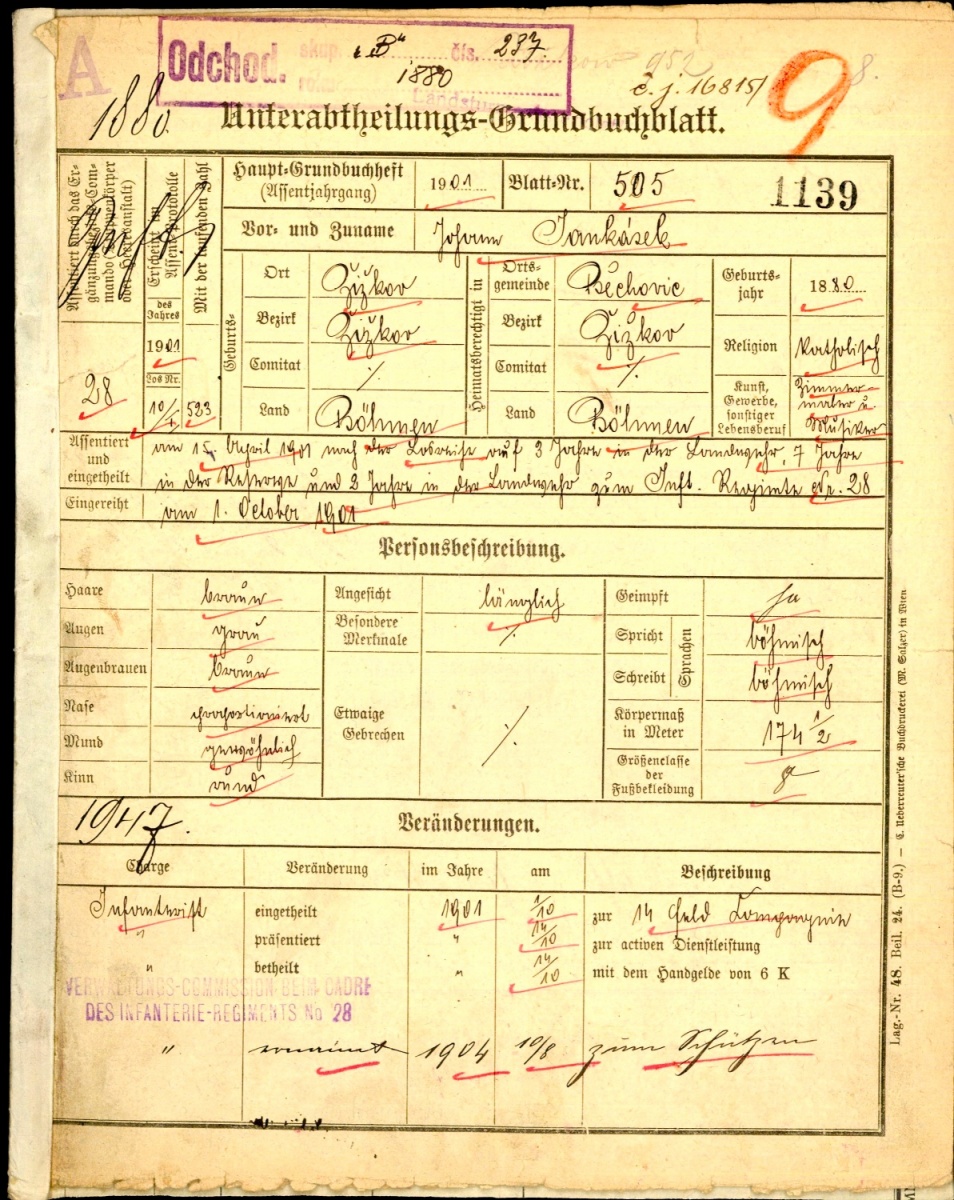 A
Odchod. skup. "B" čís. 237
1880
952
8.
č. j. 16815/
9
1880.
Unterabtheilungs-Grundbuchblatt.
Assentiert durch das Ergänzungsbezirks-Commando (Truppenkörper oder Heeresanstalt)
28
Erscheint im Assentprotokolle
des Jahres
1901
Los Nr.
10/I
Mit der laufenden Zahl
523
Haupt-Grundbuchheft
(Assentjahrgang)
1901
Blatt-Nr. 505
1139
Vor- und Zuname Johann Jankásek
Geburts-
Ort Žižkov
Bezirk Žižkov
Comitat ⁒
Land Böhmen
Heimatsberechtigt in
Ortsgemeinde Běchovic
Bezirk Žižkov
Comitat ⁒
Land Böhmen
Geburtsjahr 1880
Religion katholisch
Kunst, Gewerbe, sonstiger Lebensberuf Zimmermaler u. Musiker
Assentiert und eingetheilt
am 15. April 1901 nach der Losreihe auf 3 Jahre in der Landwehr, 7 Jahre
in der Reserve und 2 Jahre in der Landwehr zum Inft. Regimte Nr. 28
Eingereiht am 1. October 1901
Personsbeschreibung.
Haare braun
Augen grau
Augenbrauen braun
Nase proportioniert
Mund gewöhnlich
Kinn rund
Angesicht länglich
Besondere Merkmale ⁒
Etwaige Gebrechen ⁒
Geimpft ja
Sprachen
Spricht böhmisch
Schreibt böhmisch
Körpermaß in Meter 174 1/2
Größenclasse der Fußbekleidung 8
1947.
Veränderungen.
Charge Veränderung im Jahre am Beschreibung
Infanterist eingetheilt 1901 1/10 zur 14 Feld Compagnie
" präsentiert " 14/10 zur activen Dienstleistung
" betheilt " 14/10 mit dem Handgelde von 6 K
VERWALTUNGS-COMMISSION BEIM CADRE
DES INFANTERIE-REGIMENTS No 28
" ernannt 1904 10/8 zum Schützen
Lag.-Nr. 48. Beil. 24. (B-9.) — C. Ueberreuter'sche Buchdruckerei (M. Salzer) in Wien.